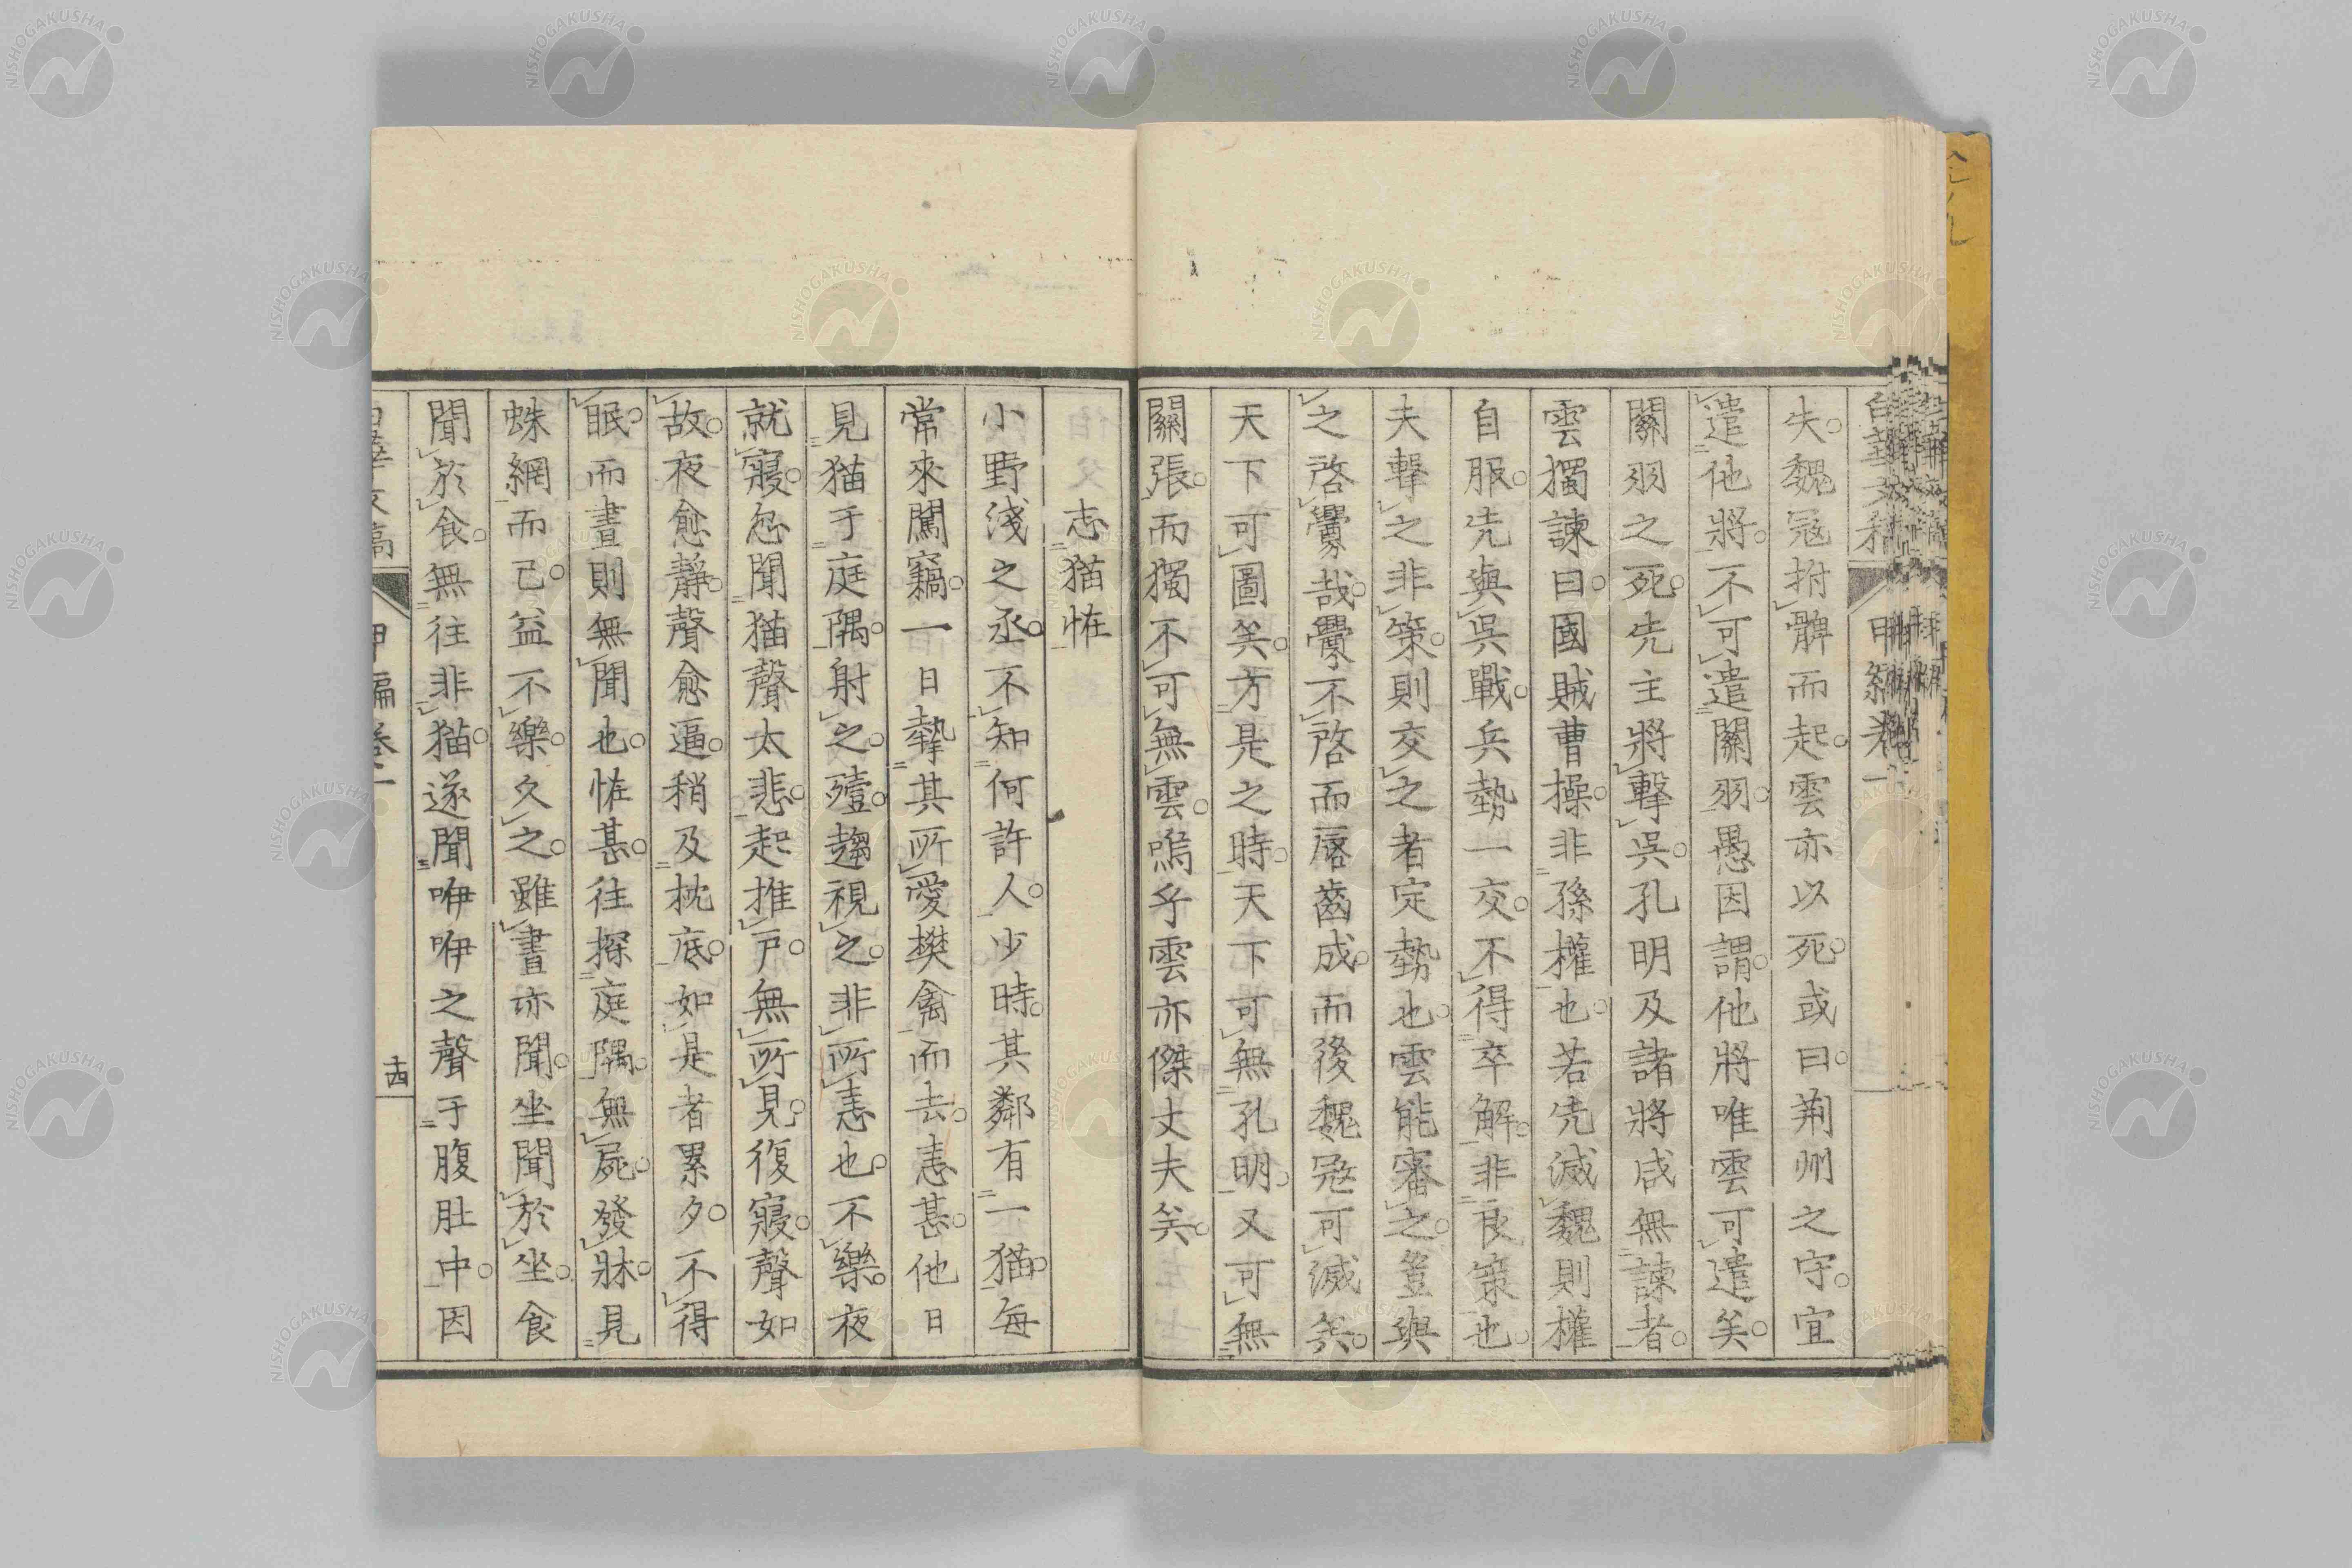 失。魏冦拊髀而起。雲亦以死。或曰。荊州之守。宜
遣他將。不可遣關羽。愚因謂。他將唯雲可遣矣。
關羽之死。先主將擊吳。孔明及諸將咸無諫者。
雲獨諫曰。國賊曹操。非孫權也。若先滅魏則權
自服。先與吳戰。兵勢一交。不得卒解。非良策也。
夫擊之非策。則交之者定勢也。雲能審之。豈與
之啓釁哉。釁不啓而唇齒成。而後魏冦可滅矣。
天下可圖矣。方是之時。天下可無孔明。又可無
關張。而獨不可無雲。嗚乎雲亦傑丈夫矣。
志猫恠
小野淺之丞。不知何許人。少時。其鄰有一猫。每
常來闖竊。一日摯其所愛樊禽而去。恚甚。他日
見猫于庭隅。射之。殪。趨視之。非所恚也。不樂。夜
就寢。忽聞猫聲太悲。起推戶。無所見。復寢。聲如
故。夜愈靜。聲愈逼。稍及枕底。如是者累夕。不得
眠。而晝則無聞也。恠甚。往探庭隅。無屍。發牀。見
蛛網而已。益不樂。久之。雖晝亦聞。坐聞於坐。食
聞於食。無往非猫。遂聞咿咿之聲于腹肚中。因
甲編卷二
十四
NISHOGAKUSHA